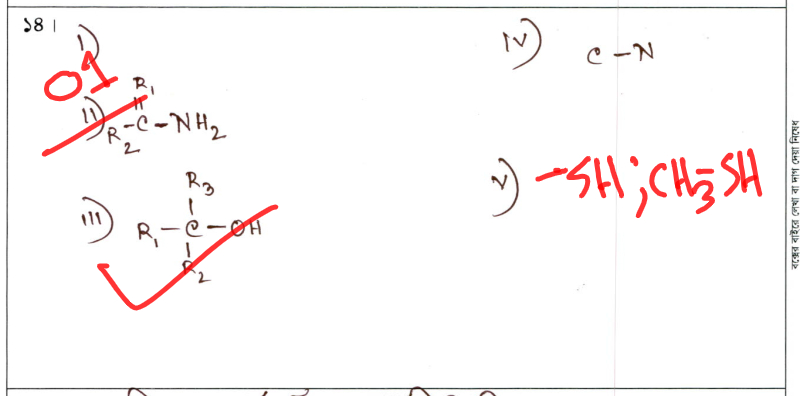 ১৪।
i)
01
ii) R₁=C(-R₂)-NH₂
iii) R₁-C(-R₃)(-R₂)-OH
iv) C-N
v) -SH; CH₃-SH
বক্সের বাইরে লেখা বা দাগ দেয়া নিষেধ